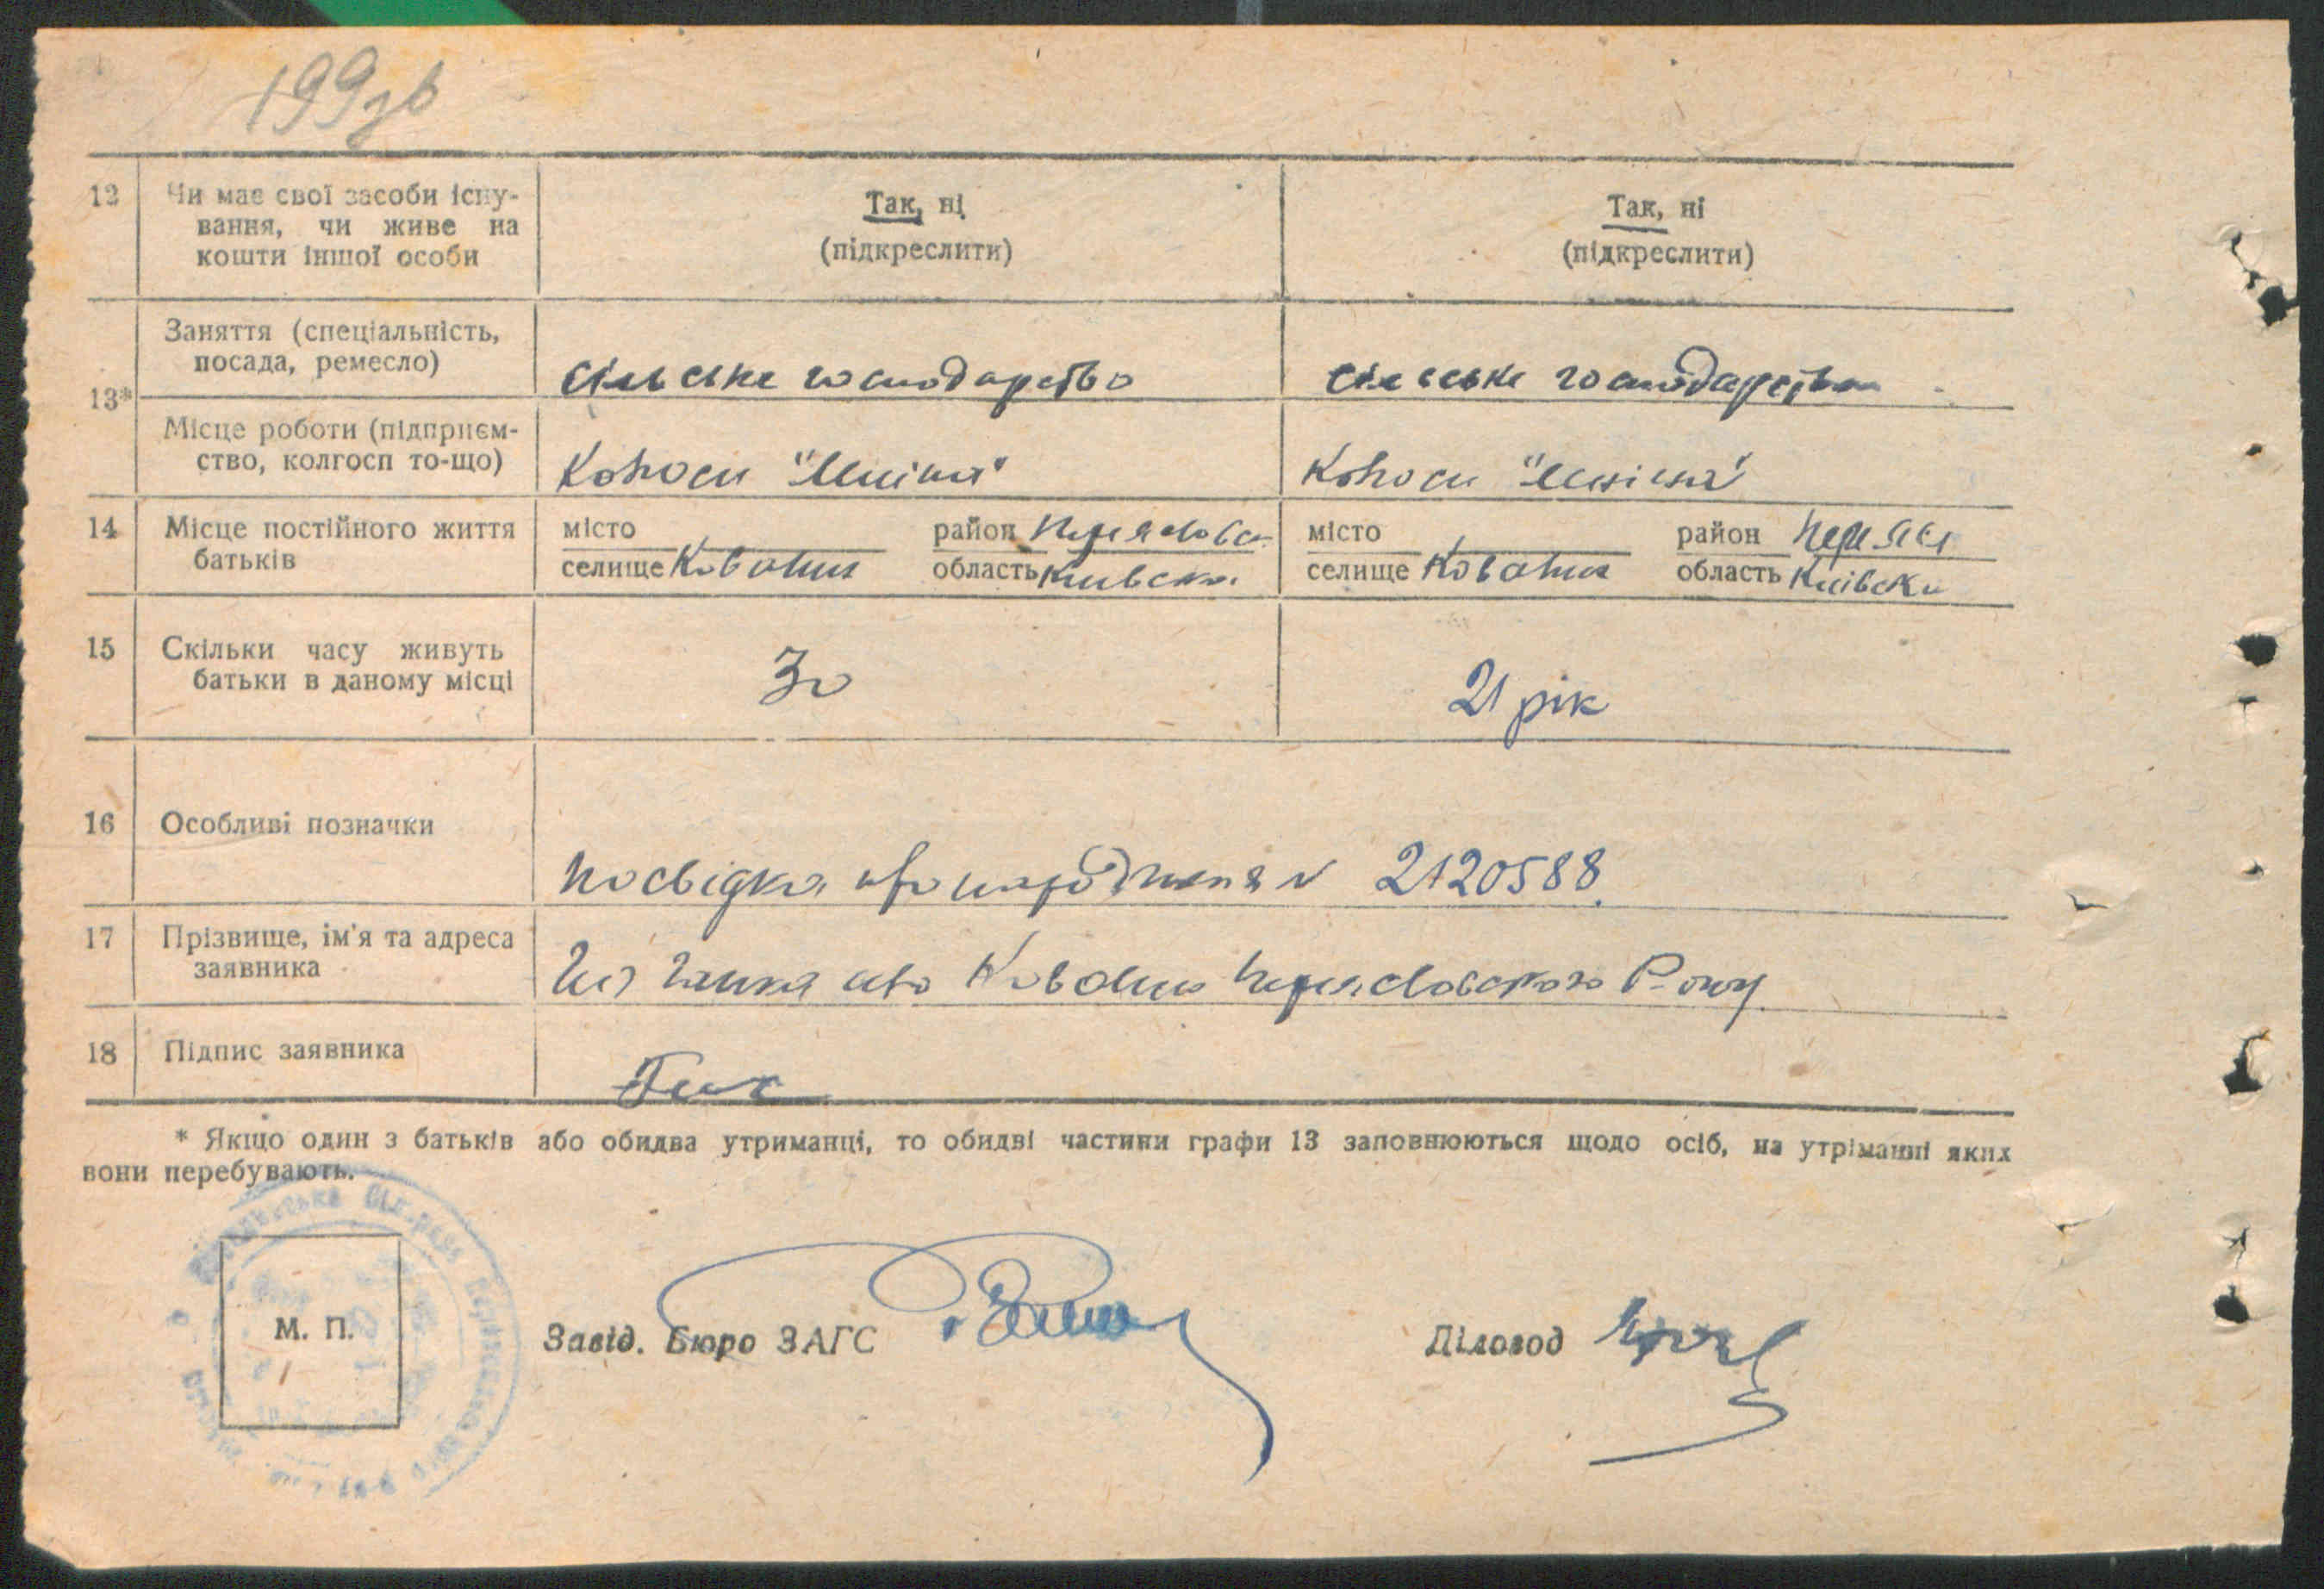 199зв
12 Чи має свої засоби існу-
вання, чи живе на
кошти іншої особи
Так, ні
(підкреслити)
Так, ні
(підкреслити)
13*
Заняття (спеціальність,
посада, ремесло)
сільське господарство
сільське господарство
Місце роботи (підприєм-
ство, колгосп то-що)
14 Місце постійного життя
батьків
місто район
селище Ковалин область Київська
місто район Переясл
селище Ковалин область Київськ
15 Скільки часу живуть
батьки в даному місці
30
21 рік
16 Особливі позначки
Посвідка про народження № 2120588.
17 Прізвище, ім'я та адреса
заявника
Ковалин Переяславского Р-ону
18 Підпис заявника
* Якщо один з батьків або обидва утриманці, то обидві частини графи 13 заповнюються щодо осіб, на утріманні яких
вони перебувають.
М. П.
Завід. Бюро ЗАГС
Діловод